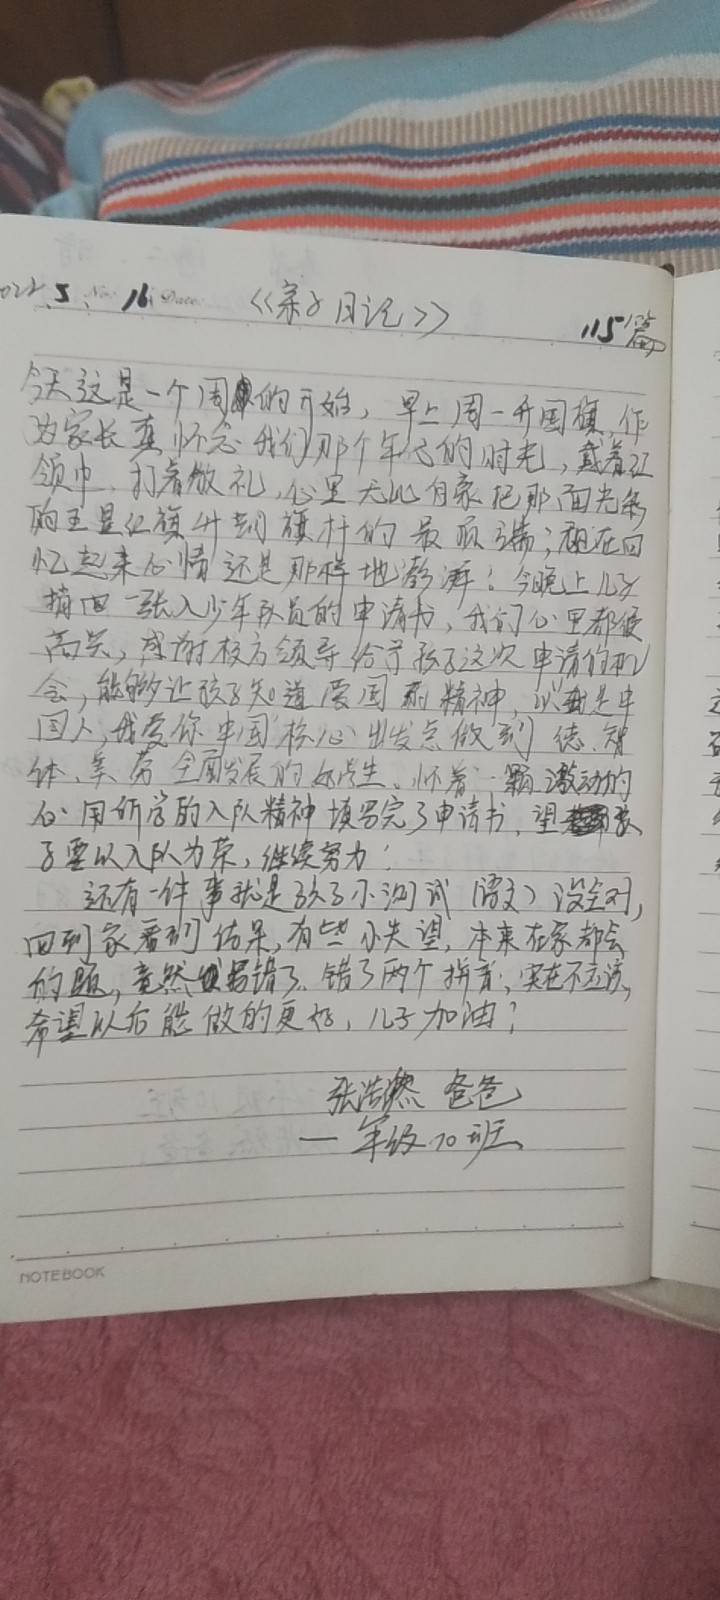 2022.5 No. 16 Date 《亲子日记》 115篇
今天这是一个周的开始，早上周一升国旗，作
为家长真怀念我们那个年代的时光，戴着红
领巾，打着敬礼，心里无比自豪把那面光荣
的五星红旗升到旗杆的最顶端；现在回
忆起来心情还是那样地澎湃！今晚上儿子
捎回一张入少年队员的申请书，我们心里都很
高兴，感谢校方领导给予孩子这次申请的机
会，能够让孩子知道爱国的精神，以我是中
国人，我爱你中国核心出发点做到德、智
体、美、劳全面发展的好学生。怀着一颗激动的
心用所学的入队精神填写完了申请书，望孩
子要以入队为荣，继续努力！
还有一件事就是孩子小测试（语文）没全对，
回到家看到结果，有些小失望，本来在家都会
的题，竟然写错了，错了两个拼音，实在不应该，
希望以后能做的更好，儿子加油！
张浩然 爸爸
一年级10班
NOTEBOOK